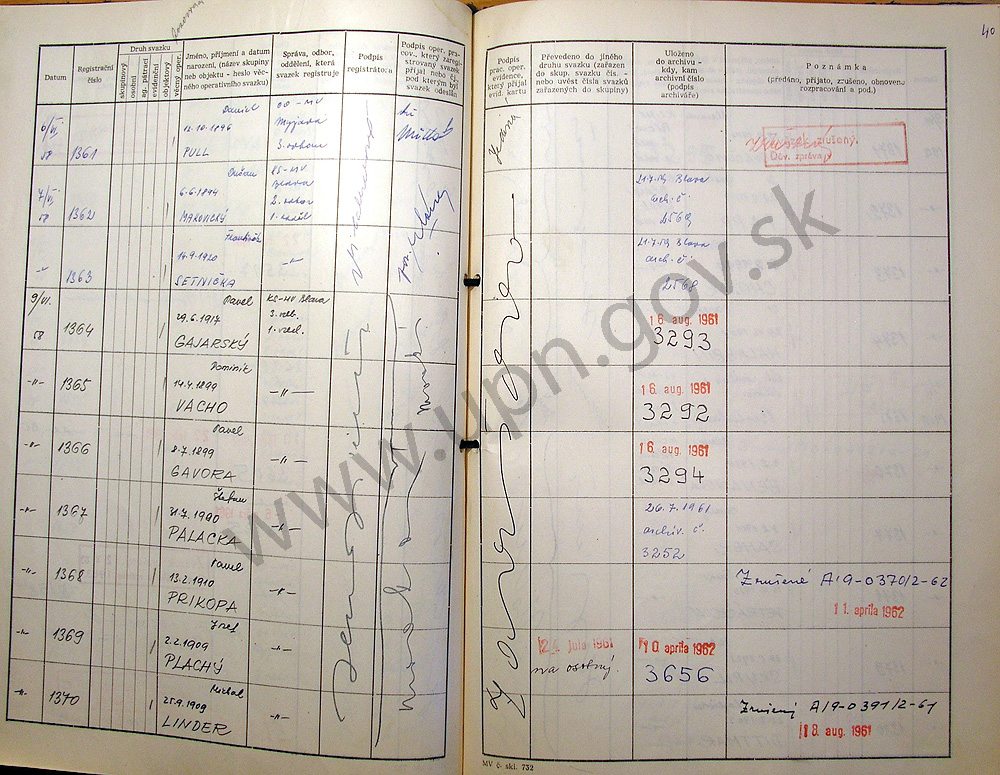 40
Datum
Registrační číslo
Druh svazku
skupinový
osobní
ag. pátrací
evidenční
objektový
věcný oper.
Jméno, příjmení a datum
narození, (název skupiny
neb objektu - heslo věc-
ného operativního svazku)
Správa, odbor,
oddělení, která
svazek registruje
Podpis
registrátora
Podpis oper. pra-
cov., který zareg-
istrovaný svazek
přijal nebo čj.
pod kterým byl
svazek odeslán
Podpis
prac. oper.
evidence,
který přijal
evid. kartu
Převedeno do jiného
druhu svazku (zařazen
do skup. svazku čis. -
nebo uvést čísla svazků
zařazených do skupiny)
Uloženo
do archivu -
kdy, kam
archivní číslo
(podpis
archiváře)
Poznámka
(předáno, přijato, zrušeno, obnoveno
rozpracování a pod.)
6/VI. 58 1361 Daniel
12.10.1896
PULL
OO - MV
Myjava
Svazek zrušený.
7/VI. 58 1362 Dušan
6.6.1894
MAKOVICKÝ
KS-MV
Blava
2. odbor
21.7.59 Blava
arch. č.
2569
-"- 1363 František
14.9.1920
SETNIČKA
-"-
21.7.59 Blava
arch. č.
2568
9/VI. 58 1364 Pavel
29.6.1917
GAJARSKÝ
KS-MV Blava
16 aug. 1961
3293
-"- 1365 Dominik
14.4.1899
VACHO
-"-
16. aug. 1961
3292
-"- 1366 Pavel
2.7.1899
GAVORA
-"-
16. aug. 1961
3294
-"- 1367 Štefan
PALACKA
-"-
26.7.1961
archív. č.
3252
-"- 1368 Pavel
13.2.1910
PRIKOPA
-"-
Zrušené A/9-0370/2-62
11. apríla 1962
-"- 1369 Jozef
2.2.1909
PLACHÝ
-"-
júla 1961
na osobný.
10 apríla 1962
3656
-"- 1370 Michal
25.9.1909
LINDER
-"-
Zrušený A/9-0391/2-61
18. aug. 1961
MV č. skl. 732
www.upn.gov.sk